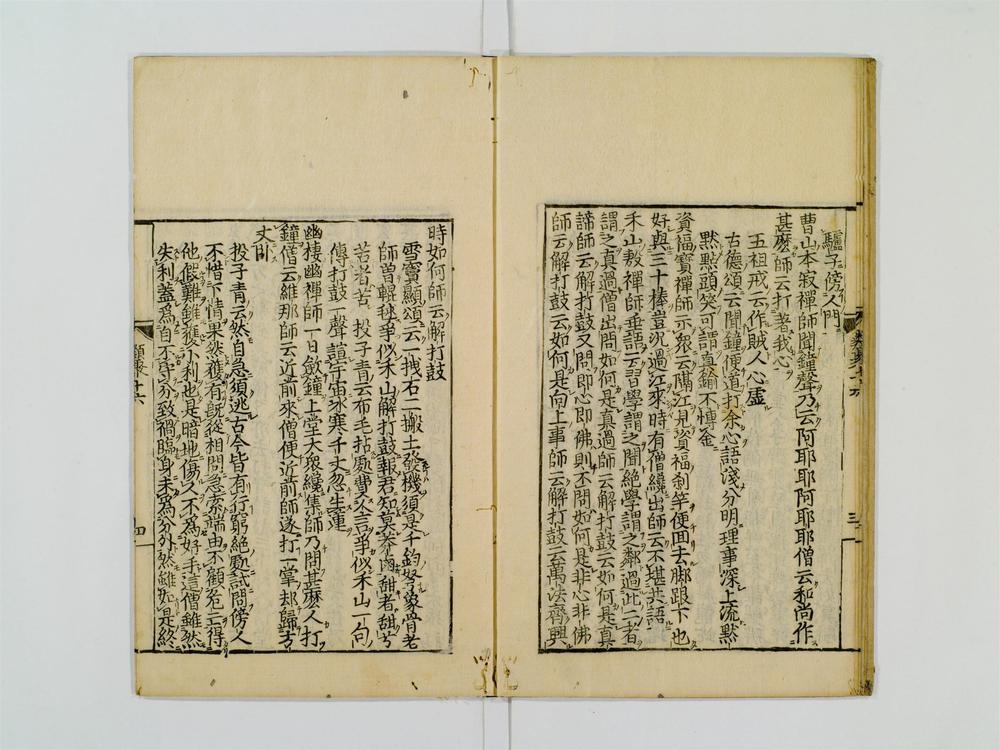 驢子傍人門
曹山本寂禪師聞鐘聲乃云阿耶耶阿耶耶僧云和尚作
甚麽師云打著我心
五祖戒云作賊人心虛
古德頌云聞鐘便道打余心語淺分明理事深上流黙
黙點頭笑可謂真鍮不愽金
資福寶禪師示衆云隔江見資福刹竿便回去脚跟下也
好與三十棒豈况過江來時有僧纔出師云不堪共語
禾山殷禪師垂語云習學謂之聞絶學謂之鄰過此二者
謂之真過僧出問如何是真過師云解打鼓云如何是真
諦師云解打鼓又問即心即佛則不問如何是非心非佛
師云解打鼓云如何是向上事師云解打鼓云萬法齊興
時如何師云解打鼓
雪竇顯頌云一拽石二搬土發機須是千鈞弩象骨老
師曽輥毬爭似禾山解打鼓報君知莫莽鹵甜者甜兮
苦者苦 投子青云布毛拈處費公言爭似禾山一句
傳打鼓一聲諠宇宙氷寒千丈忽生蓮
幽棲幽禪師一日斂鐘上堂大衆纔集師乃問甚麽人打
鐘僧云維那師云近前來僧便近前師遂打一掌却歸方
丈卧
投子青云然自急須逃古今皆有行窮絶處試問傍人
不惜下情果然獲有既從相問急索端由不顧危亡得
他假難雖獲小利也是暗地傷人不為好手這僧雖然
失利蓋爲自不守分致禍臨身未爲分外然雖如是終